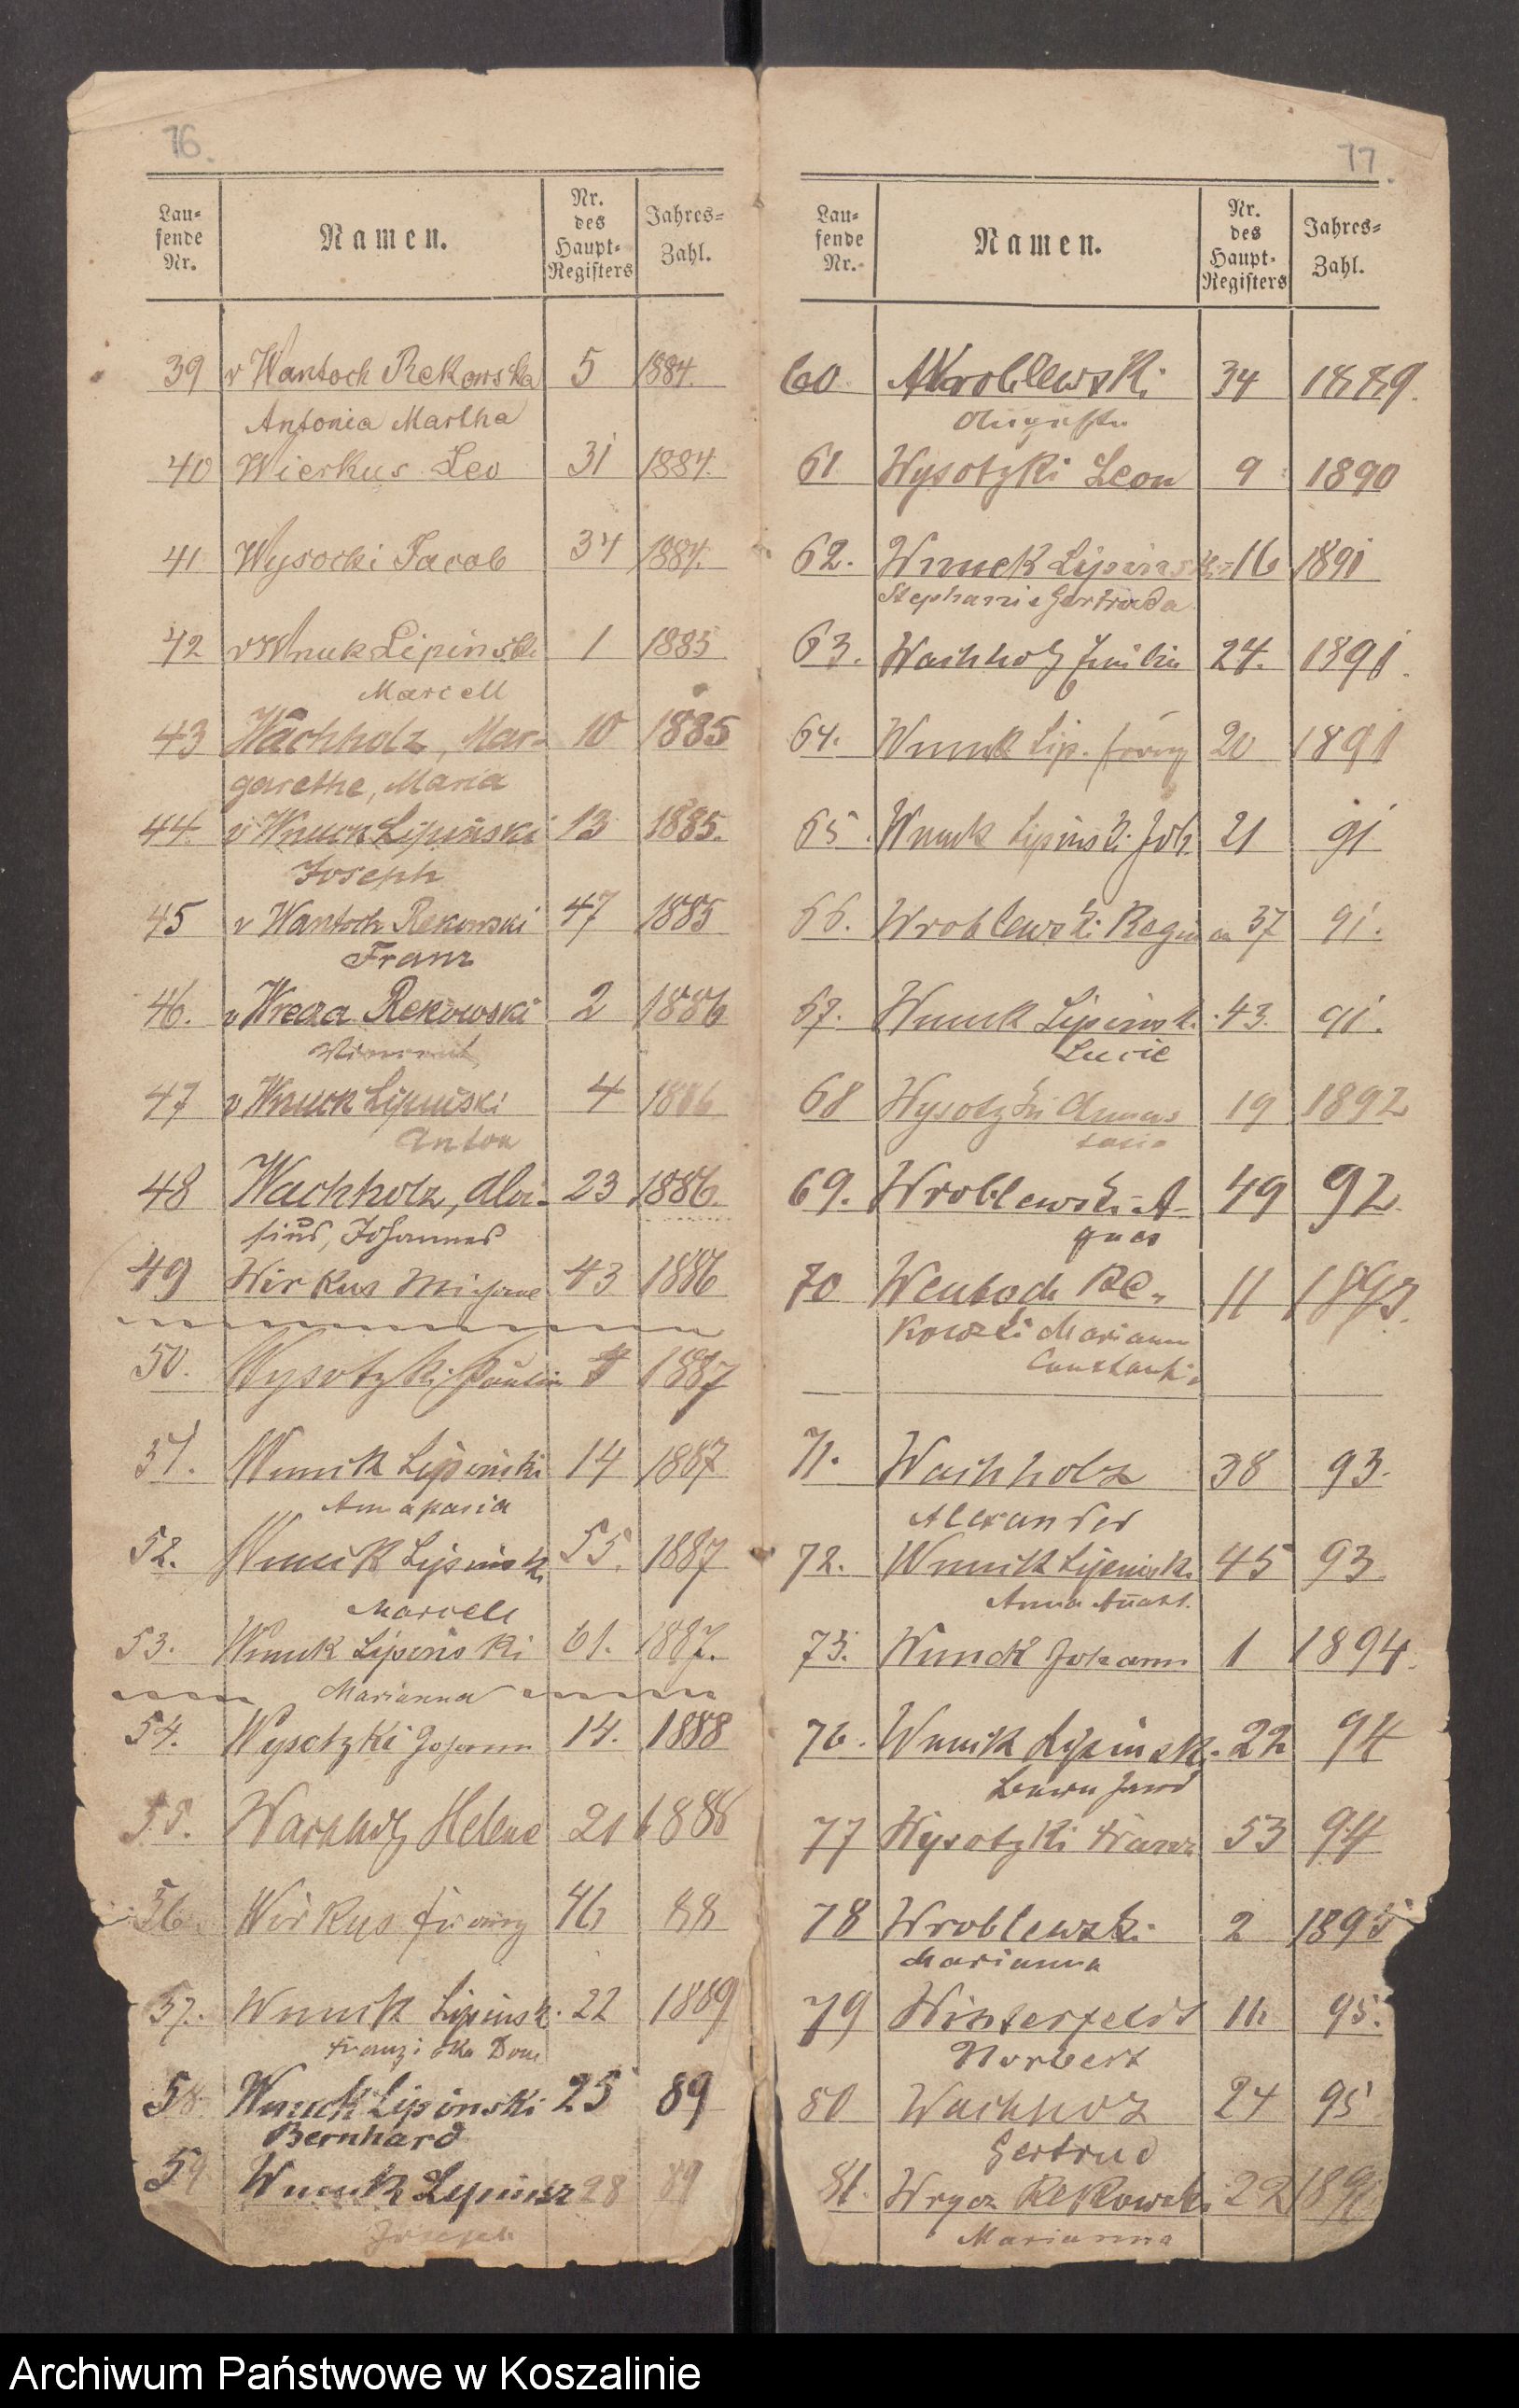 76.
Lau-
fende
Nr.
Namen.
Nr.
des
Haupt-
Registers
Jahres-
Zahl.
39 v Wantoch Rekowska 5 1884.
Antonia Martha
40 Wierkus Leo 31 1884.
41 Wysocki Jacob 34 1884.
42 v Wnuk Lipinski 1 1885
Marcell
43 Wachholz, Mar- 10 1885
garethe, Maria
44. v Wnuck Lipinski 13 1885.
Joseph
45 v Wantoch Rekowski 47 1885
Franz
46. v Wrcza Rekowski 2 1886
Vincent
47 v Wnuck Lipinski 4 1886
Anton
48 Wachholz, Aloi- 23 1886.
sius, Johannes
49 Wirkus 43 1886
50. Wysotzki Paulin 1887
51. Wnuck Lipinski 14 1887
52. Wnuck Lipinski 55. 1887
Marcell
53. Wnuck Lipinski 61. 1887.
Marianna
54. Wysotzki Johann 14. 1888
55. Wachholz Helene 21 1888
56. Wirkus Franz 46 88
57. Wnuck Lipinsk. 22 1889
Franziska
58. Wnuck Lipinski 25 89
Bernhard
59 Wnuck Lipinsz 28 89
Joseph
77.
Lau-
fende
Nr.
Namen.
Nr.
des
Haupt-
Registers
Jahres-
Zahl.
60. Wroblewski 34 1889.
Auguste
61 Wysotzki Leon 9 1890
62. Wnuck Lipinska 16 1891
Stephanie Gertruda
63. Wachholz 24. 1891.
64. Wnuck Lip. Franz 20 1891
65. Wnuck Lipinski Joh. 21 91
66. Wroblewski Regina 37 91.
67. Wnuck Lipinsk. 43. 91.
Lucie
68 Wysotzki Anas 19 1892
tasia
69. Wroblewski A- 49 92.
gnes
70 Wentoch Re- 11 1893.
kowski Mariann
Constanti
71. Wachholz 38 93.
Alexander
72. Wnuck Lipinsk. 45 93.
Anna
73. Wnuck Johann 1 1894.
76. Wnuck Lipinsk. 22 94
77 Wysotzki Franz 53 94
78 Wroblewski 2 1895
Marianna
79 Winterfeldt 95.
Norbert
80 Wachhoz 24 95
Gertrud
81. Wrycz Rekowski 22
Marianna
Archiwum Państwowe w Koszalinie